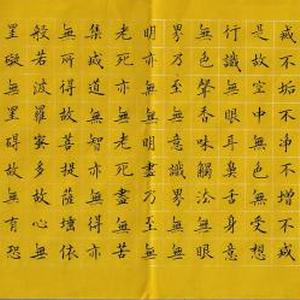 滅不垢不淨不增不減
是故空中無色無受想
行識無眼耳鼻舌身意
無色聲香味觸法無眼
界乃至無意識界無無
明亦無無明盡乃至無
老死亦無老死盡無苦
集滅道無智亦無得以
無所得故菩提薩埵依
般若波羅蜜多故心無
罣礙無罣礙故無有恐